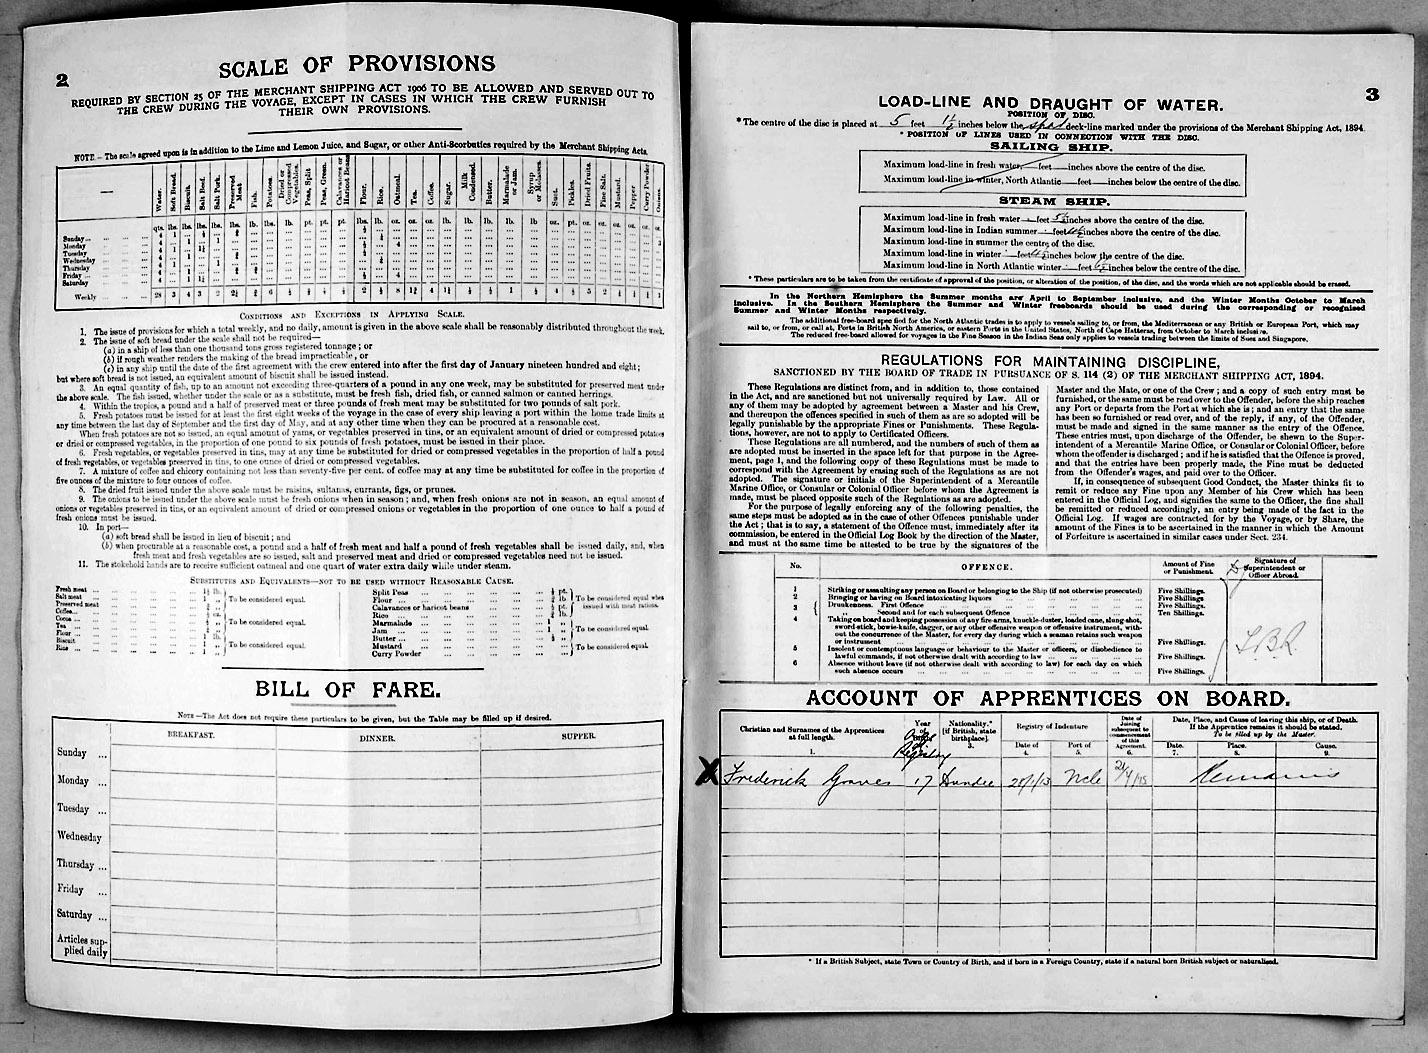 2
SCALE OF PROVISIONS
REQUIRED BY SECTION 25 OF THE MERCHANT SHIPPING ACT 1906 TO BE ALLOWED AND SERVED OUT TO
THE CREW DURING THE VOYAGE, EXCEPT IN CASES IN WHICH THE CREW FURNISH
THEIR OWN PROVISIONS.
NOTE.—The scale agreed upon is in addition to the Lime and Lemon Juice, and Sugar, or other Anti-Scorbutics required by the Merchant Shipping Acts.
Water. Soft Bread. Biscuit. Salt Beef. Salt Pork. Preserved Meat. Fish. Potatoes. Dried or Compressed Vegetables. Peas, Split Peas, Green. Calavances or Haricot Beans Flour. Rice. Oatmeal. Tea. Coffee. Sugar. Milk Condensed. Butter. Marmalade or Jam. Syrup or Molasses. Suet. Pickles. Dried Fruits. Fine Salt. Mustard. Pepper Curry Powder Onions.
Sunday
Monday
Tuesday
Wednesday
Thursday
Friday
Saturday
Weekly
CONDITIONS AND EXCEPTIONS IN APPLYING SCALE.
1. The issue of provisions for which a total weekly, and no daily, amount is given in the above scale shall be reasonably distributed throughout the week.
2. The issue of soft bread under the scale shall not be required—
(a) in a ship of less than one thousand tons gross registered tonnage; or
(b) if rough weather renders the making of the bread impracticable, or
(c) in any ship until the date of the first agreement with the crew entered into after the first day of January nineteen hundred and eight;
but where soft bread is not issued, an equivalent amount of biscuit shall be issued instead.
3. An equal quantity of fish, up to an amount not exceeding three-quarters of a pound in any one week, may be substituted for preserved meat under
the above scale. The fish issued, whether under the scale or as a substitute, must be fresh fish, dried fish, or canned salmon or canned herrings.
4. Within the tropics, a pound and a half of preserved meat or three pounds of fresh meat may be substituted for two pounds of salt pork.
5. Fresh potatoes must be issued for at least the first eight weeks of the voyage in the case of every ship leaving a port within the home trade limits at
any time between the last day of September and the first day of May, and at any other time when they can be procured at a reasonable cost.
When fresh potatoes are not so issued, an equal amount of yams, or vegetables preserved in tins, or an equivalent amount of dried or compressed potatoes
or dried or compressed vegetables, in the proportion of one pound to six pounds of fresh potatoes, must be issued in their place.
6. Fresh vegetables, or vegetables preserved in tins, may at any time be substituted for dried or compressed vegetables in the proportion of half a pound
of fresh vegetables, or vegetables preserved in tins, to one ounce of dried or compressed vegetables.
7. A mixture of coffee and chicory containing not less than seventy-five per cent. of coffee may at any time be substituted for coffee in the proportion of
five ounces of the mixture to four ounces of coffee.
8. The dried fruit issued under the above scale must be raisins, sultanas, currants, figs, or prunes.
9. The onions to be issued under the above scale must be fresh onions when in season; and, when fresh onions are not in season, an equal amount of
onions or vegetables preserved in tins, or an equivalent amount of dried or compressed onions or vegetables in the proportion of one ounce to half a pound of
fresh onions must be issued.
10. In port—
(a) soft bread shall be issued in lieu of biscuit; and
(b) when procurable at a reasonable cost, a pound and a half of fresh meat and half a pound of fresh vegetables shall be issued daily, and, when
fresh meat and fresh vegetables are so issued, salt and preserved meat and dried or compressed vegetables need not be issued.
11. The stokehold hands are to receive sufficient oatmeal and one quart of water extra daily while under steam.
SUBSTITUTES AND EQUIVALENTS—NOT TO BE USED WITHOUT REASONABLE CAUSE.
Fresh meat
Salt meat
Preserved meat
To be considered equal.
Coffee
Cocoa
Tea
To be considered equal.
Flour
Biscuit
Rice
To be considered equal.
Split Peas
Flour
Calavances or haricot beans
Rice
To be considered equal when issued with meat rations.
Marmalade
Jam
Butter
To be considered equal.
Mustard
Curry Powder
To be considered equal.
BILL OF FARE.
NOTE—The Act does not require these particulars to be given, but the Table may be filled up if desired.
BREAKFAST. DINNER. SUPPER.
Sunday ...
Monday ...
Tuesday ...
Wednesday
Thursday ...
Friday ...
Saturday ...
Articles supplied daily
3
LOAD-LINE AND DRAUGHT OF WATER.
POSITION OF DISC.
* The centre of the disc is placed at 5 feet 1½ inches below the spar deck-line marked under the provisions of the Merchant Shipping Act, 1894.
* POSITION OF LINES USED IN CONNECTION WITH THE DISC.
SAILING SHIP.
Maximum load-line in fresh water, feet inches above the centre of the disc.
Maximum load-line in winter, North Atlantic feet inches below the centre of the disc.
STEAM SHIP.
Maximum load-line in fresh water feet inches above the centre of the disc.
Maximum load-line in Indian summer feet inches above the centre of the disc.
Maximum load-line in summer the centre of the disc.
Maximum load-line in winter feet inches below the centre of the disc.
Maximum load-line in North Atlantic winter feet inches below the centre of the disc.
* These particulars are to be taken from the certificate of approval of the position, or alteration of the position, of the disc, and the words which are not applicable should be erased.
In the Northern Hemisphere the Summer months are April to September inclusive, and the Winter Months October to March
inclusive. In the Southern Hemisphere the Summer and Winter freeboards should be used during the corresponding or recognised
Summer and Winter Months respectively.
The additional free-board specified for the North Atlantic trades is to apply to vessels sailing to, or from, the Mediterranean or any British or European Port, which may
sail to, or from, or call at, Ports in British North America, or eastern Ports in the United States, North of Cape Hatteras, from October to March inclusive.
The reduced free-board allowed for voyages in the Fine Season in the Indian Seas only applies to vessels trading between the limits of Suez and Singapore.
REGULATIONS FOR MAINTAINING DISCIPLINE,
SANCTIONED BY THE BOARD OF TRADE IN PURSUANCE OF S. 114 (2) OF THE MERCHANT SHIPPING ACT, 1894.
These Regulations are distinct from, and in addition to, those contained
in the Act, and are sanctioned but not universally required by Law. All or
any of them may be adopted by agreement between a Master and his Crew,
and thereupon the offences specified in such of them as are so adopted will be
legally punishable by the appropriate Fines or Punishments. These Regulations,
however, are not to apply to Certificated Officers.
These Regulations are all numbered, and the numbers of such of them as
are adopted must be inserted in the space left for that purpose in the Agreement,
page 1, and the following copy of these Regulations must be made to
correspond with the Agreement by erasing such of the Regulations as are not
adopted. The signature or initials of the Superintendent of a Mercantile
Marine Office, or Consular or Colonial Officer before whom the Agreement is
made, must be placed opposite such of the Regulations as are adopted.
For the purpose of legally enforcing any of the following penalties, the
same steps must be adopted as in the case of other Offences punishable under
the Act; that is to say, a statement of the Offence must, immediately after its
commission, be entered in the Official Log Book by the direction of the Master,
and must at the same time be attested to be true by the signatures of the
Master and the Mate, or one of the Crew; and a copy of such entry must be
furnished, or the same must be read over to the Offender, before the ship reaches
any Port or departs from the Port at which she is; and an entry that the same
has been so furnished or read over, and of the reply, if any, of the Offender,
must be made and signed in the same manner as the entry of the Offence.
These entries must, upon discharge of the Offender, be shewn to the Superintendent
of a Mercantile Marine Office, or Consular or Colonial Officer, before
whom the offender is discharged; and if he is satisfied that the Offence is proved,
and that the entries have been properly made, the Fine must be deducted
from the Offender's wages, and paid over to the Officer.
If, in consequence of subsequent Good Conduct, the Master thinks fit to
remit or reduce any Fine upon any Member of his Crew which has been
entered in the Official Log, and signifies the same to the Officer, the fine shall
be remitted or reduced accordingly, an entry being made of the fact in the
Official Log. If wages are contracted for by the Voyage, or by Share, the
amount of the Fines is to be ascertained in the manner in which the Amount
of Forfeiture is ascertained in similar cases under Sect. 234.
No. OFFENCE. Amount of Fine or Punishment. Signature of Superintendent or Officer Abroad.
1 Striking or assaulting any person on Board or belonging to the Ship (if not otherwise prosecuted) Five Shillings.
2 Bringing or having on Board intoxicating liquors Five Shillings.
3 Drunkenness. First Offence Five Shillings.
„ Second and for each subsequent Offence Ten Shillings.
4 Taking on board and keeping possession of any fire-arms, knuckle-duster, loaded cane, slung-shot,
sword-stick, bowie-knife, dagger, or any other offensive weapon or offensive instrument, without
the concurrence of the Master, for every day during which a seaman retains such weapon
or instrument Five Shillings.
5 Insolent or contemptuous language or behaviour to the Master or officers, or disobedience to
lawful commands, if not otherwise dealt with according to law Five Shillings.
6 Absence without leave (if not otherwise dealt with according to law) for each day on which
such absence occurs Five Shillings.
ACCOUNT OF APPRENTICES ON BOARD.
Christian and Surnames of the Apprentices at full length. 1.
Year of
Age at Registry
Nationality.* [if British, state birthplace]. 3.
Registry of Indenture
Date of 4. Port of 5.
Date of Joining subsequent to commencement of this Agreement. 6.
Date, Place, and Cause of leaving this ship, or of Death. If the Apprentice remains it should be stated. To be filled up by the Master.
Date. 7. Place. 8. Cause. 9.
X Frederick Graves 17 Dundee Ncle Remains
* If a British Subject, state Town or Country of Birth, and if born in a Foreign Country, state if a natural born British subject or naturalised.